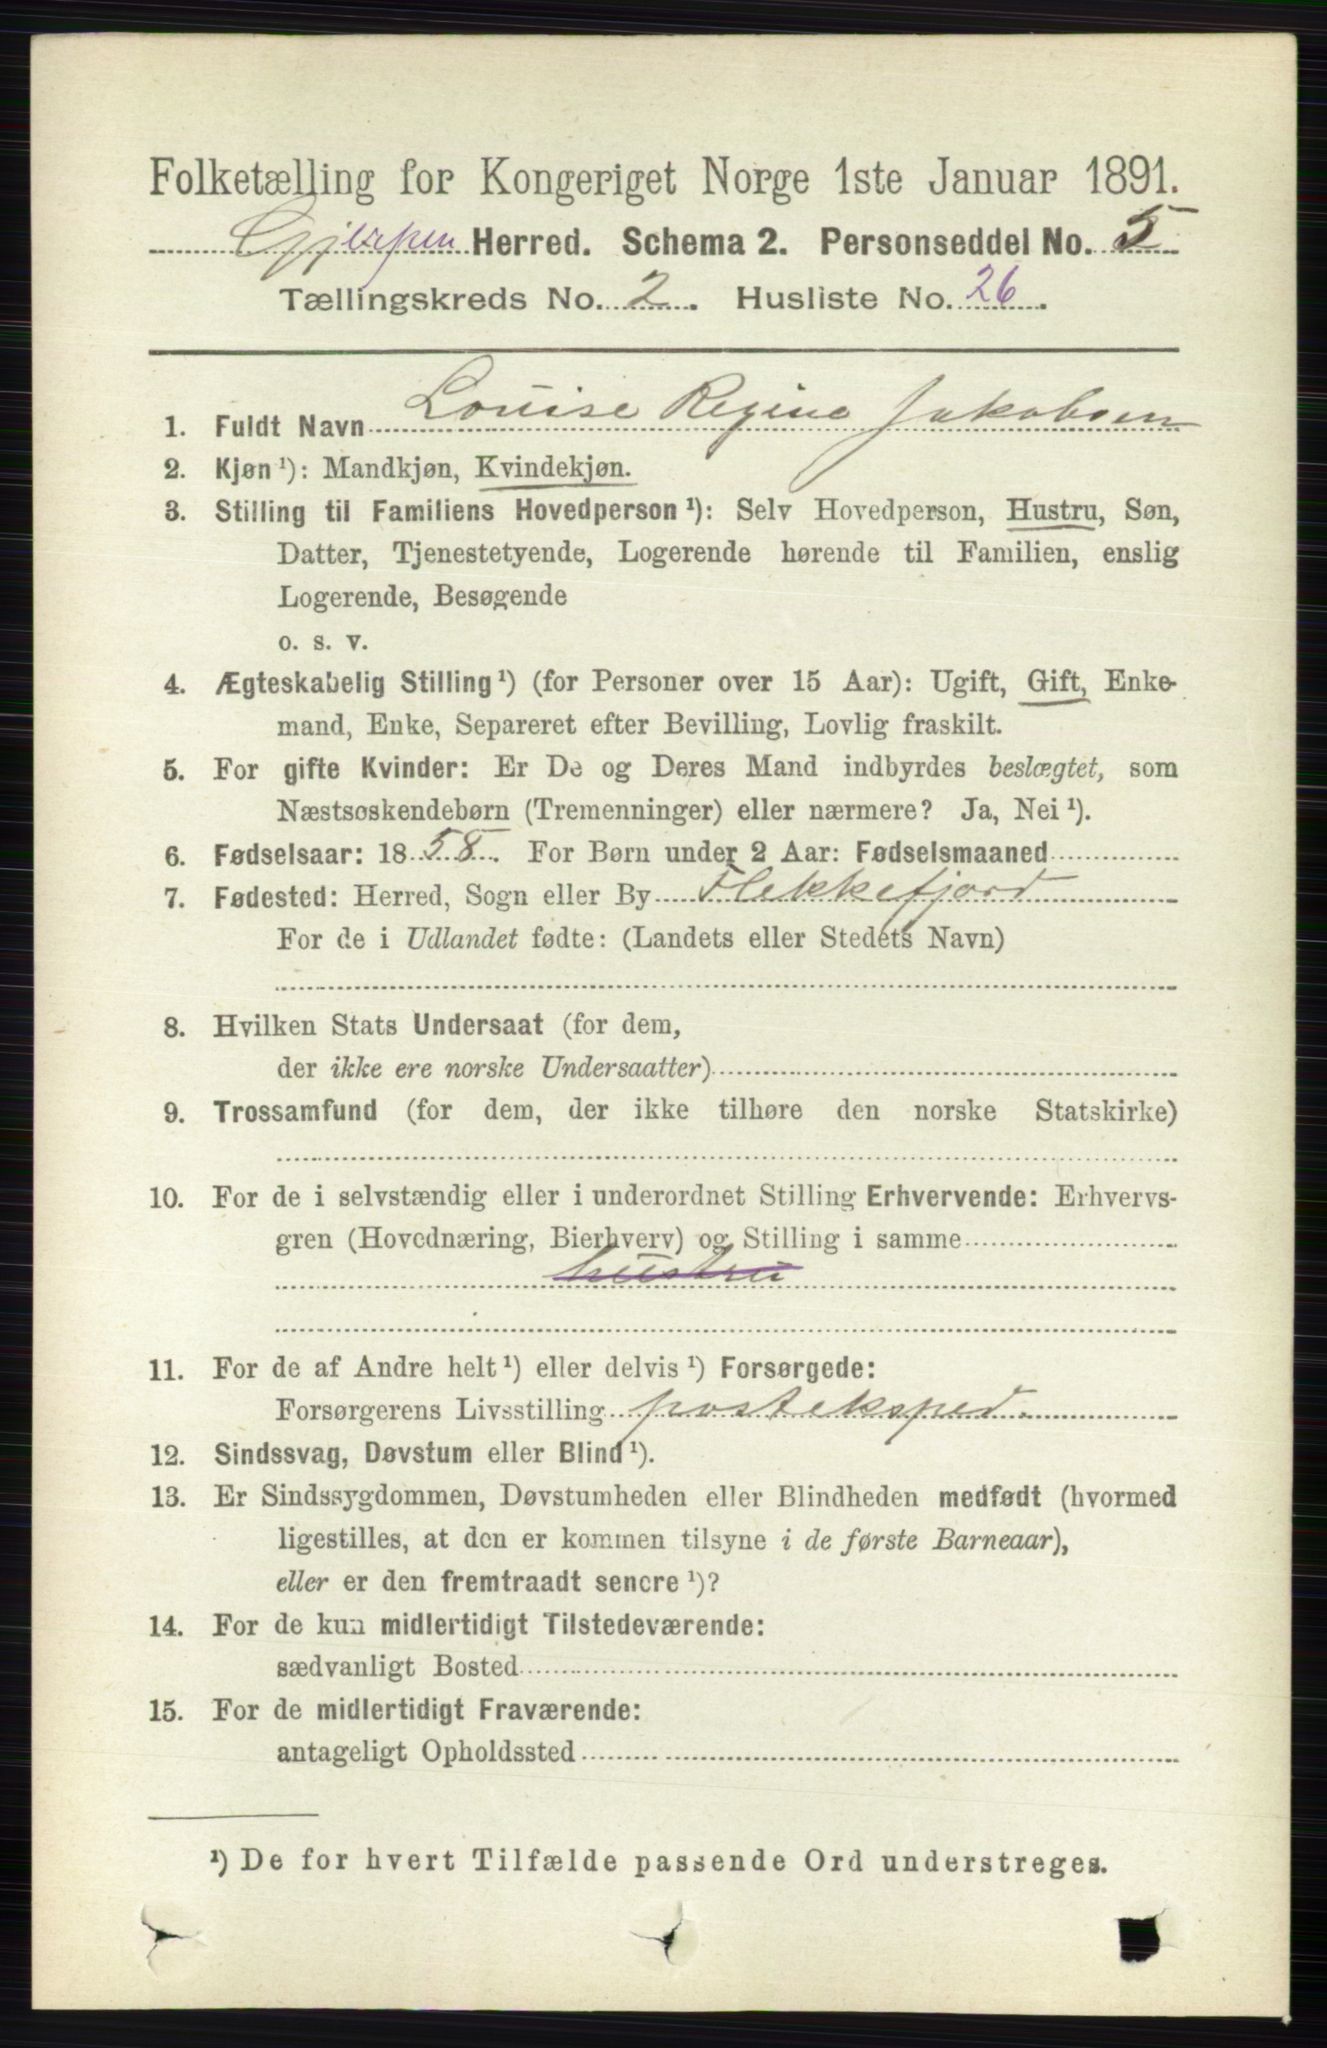 Folketælling for Kongeriget Norge 1ste Januar 1891.
Gjerpen Herred. Schema 2. Personseddel No. 5
Tællingskreds No. 2. Husliste No. 26.
1. Fuldt Navn Louise Regine Jakobsen
2. Kjøn ¹): Mandkjøn, Kvindekjøn.
3. Stilling til Familiens Hovedperson ¹): Selv Hovedperson, Hustru, Søn,
Datter, Tjenestetyende, Logerende hørende til Familien, enslig
Logerende, Besøgende
o. s. v.
4. Ægteskabelig Stilling ¹) (for Personer over 15 Aar): Ugift, Gift, Enke-
mand, Enke, Separeret efter Bevilling, Lovlig fraskilt.
5. For gifte Kvinder: Er De og Deres Mand indbyrdes beslægtet, som
Næstsøskendebørn (Tremenninger) eller nærmere? Ja, Nei ¹).
6. Fødselsaar: 1858. For Børn under 2 Aar: Fødselsmaaned
7. Fødested: Herred, Sogn eller By Flekkefjord
For de i Udlandet fødte: (Landets eller Stedets Navn)
8. Hvilken Stats Undersaat (for dem,
der ikke ere norske Undersaatter)
9. Trossamfund (for dem, der ikke tilhøre den norske Statskirke)
10. For de i selvstændig eller i underordnet Stilling Erhvervende: Erhvervs-
gren (Hovednæring, Bierhverv) og Stilling i samme
hustru
11. For de af Andre helt ¹) eller delvis ¹) Forsørgede:
Forsørgerens Livsstilling posteksped.
12. Sindssvag, Døvstum eller Blind ¹).
13. Er Sindssygdommen, Døvstumheden eller Blindheden medfødt (hvormed
ligestilles, at den er kommen tilsyne i de første Barneaar),
eller er den fremtraadt senere ¹)?
14. For de kun midlertidigt Tilstedeværende:
sædvanligt Bosted
15. For de midlertidigt Fraværende:
antageligt Opholdssted
¹) De for hvert Tilfælde passende Ord understreges.